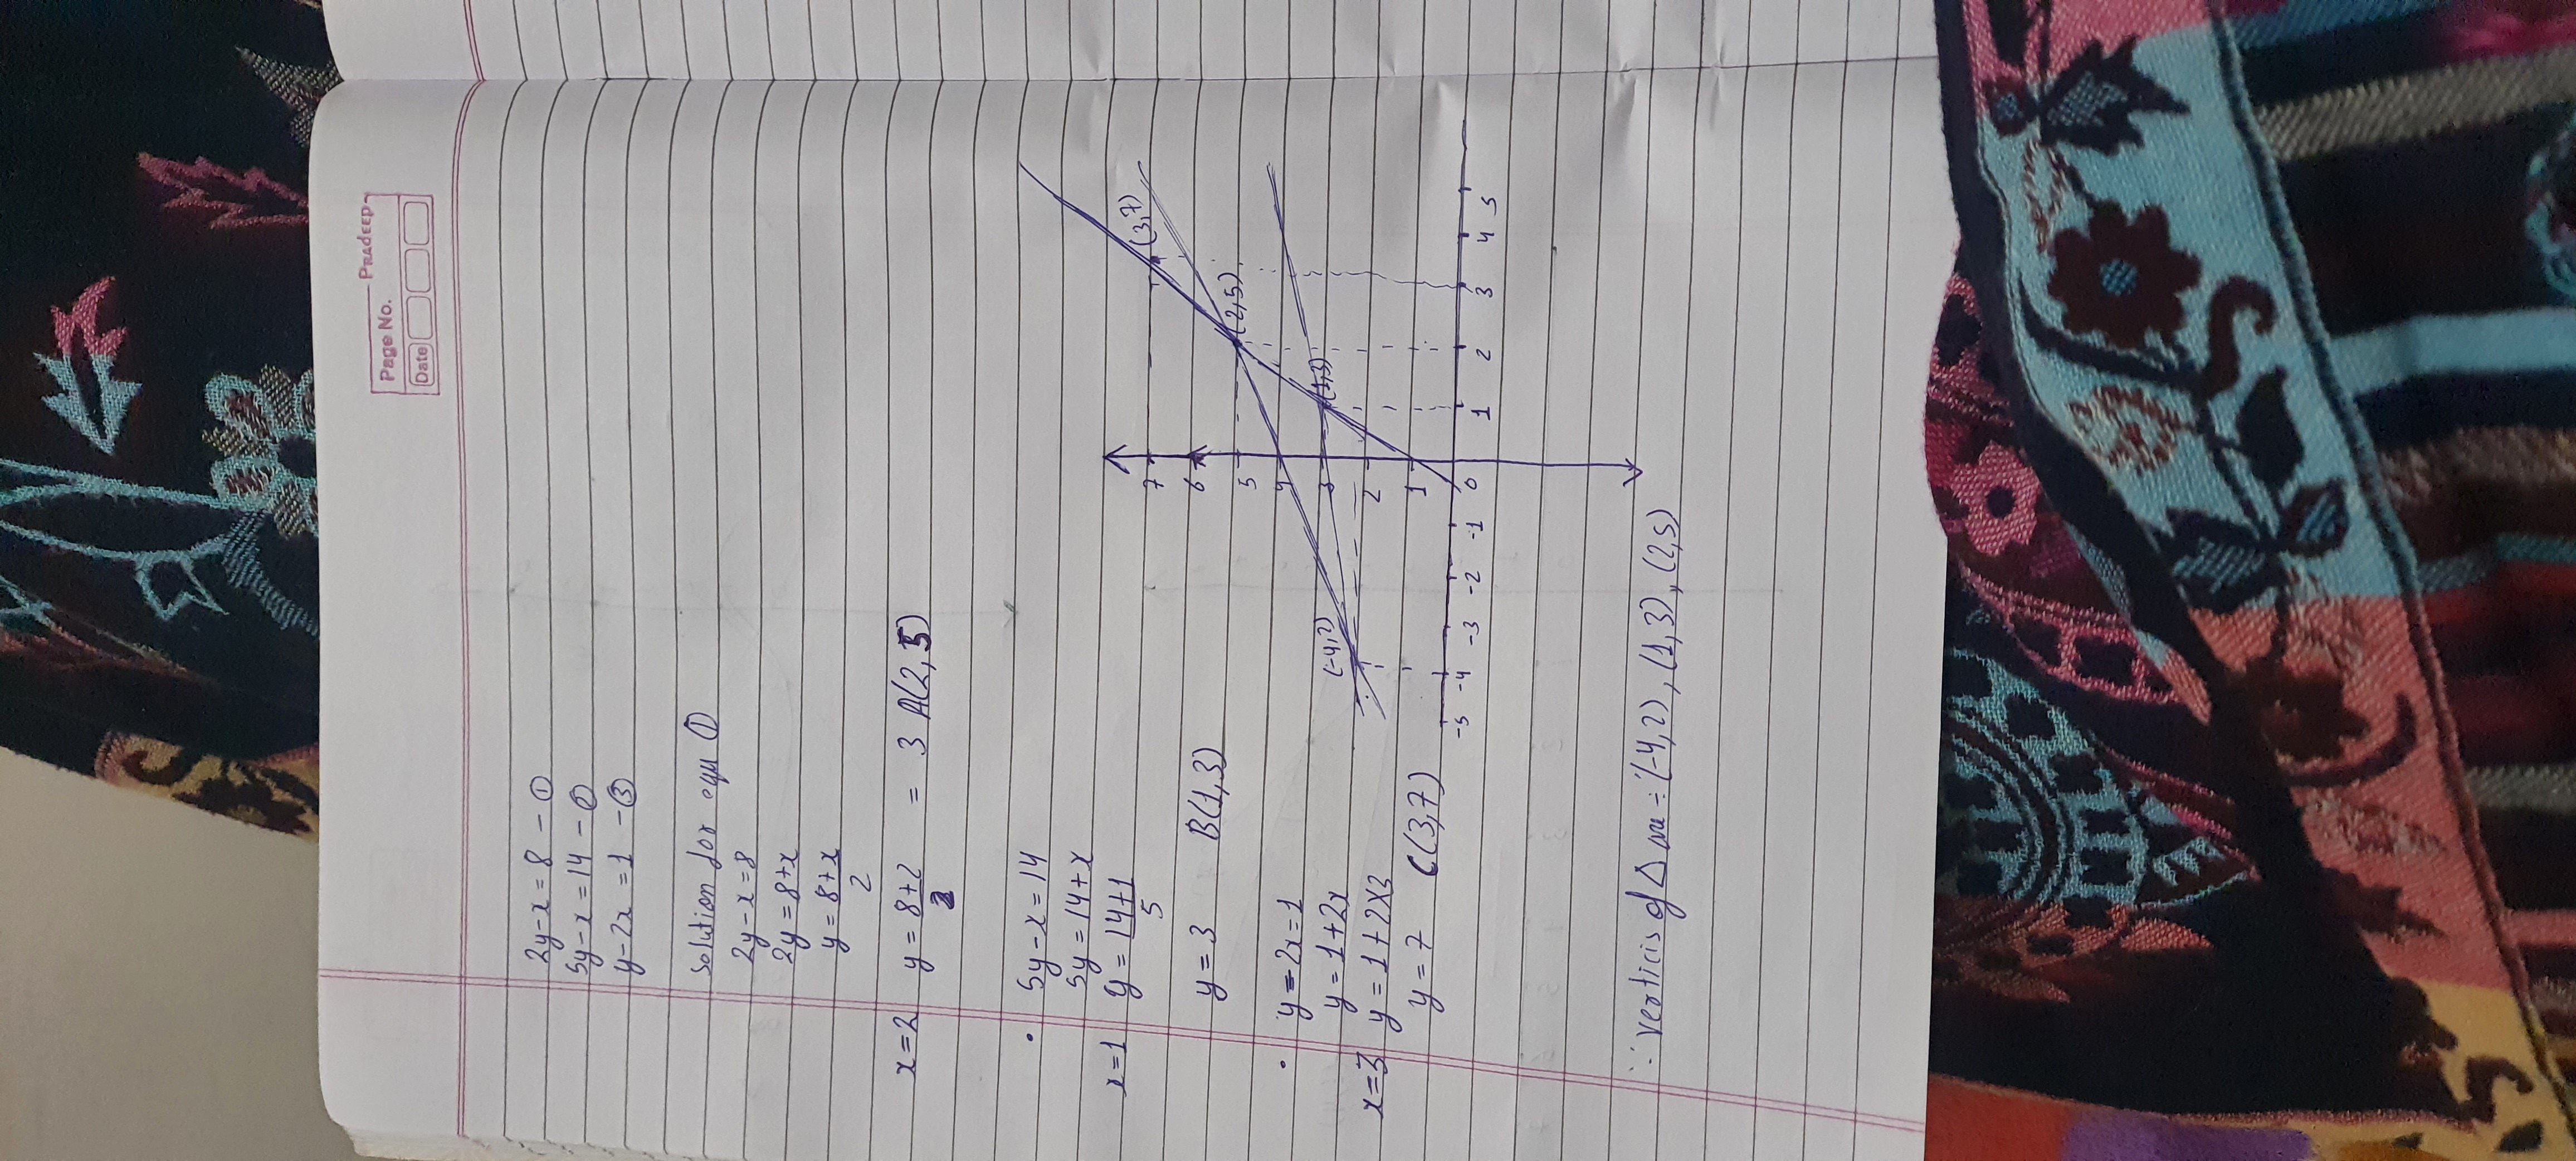 Page No.
PRADEEP
Date
2y-x=8 -①
5y-x=14 -②
y-2x=1 -③
Solution for equ ①
2y-x=8
2y=8+x
y=8+x
2
x=2 y=8+2 = 3 A(2,5)
2
. 5y-x=14
5y=14+x
x=1 y=14+1
5
y=3 B(1,3)
. y-2x=1
y=1+2x
x=3 y=1+2x3
y=7 C(3,7)
7
6
5
4
3
2
1
0
-5 -4 -3 -2 -1 1 2 3 4 5
(3,7)
(2,5)
(1,3)
(-4,2)
∴ verticis of Δ are ÷ (-4,2), (1,3), (2,5)